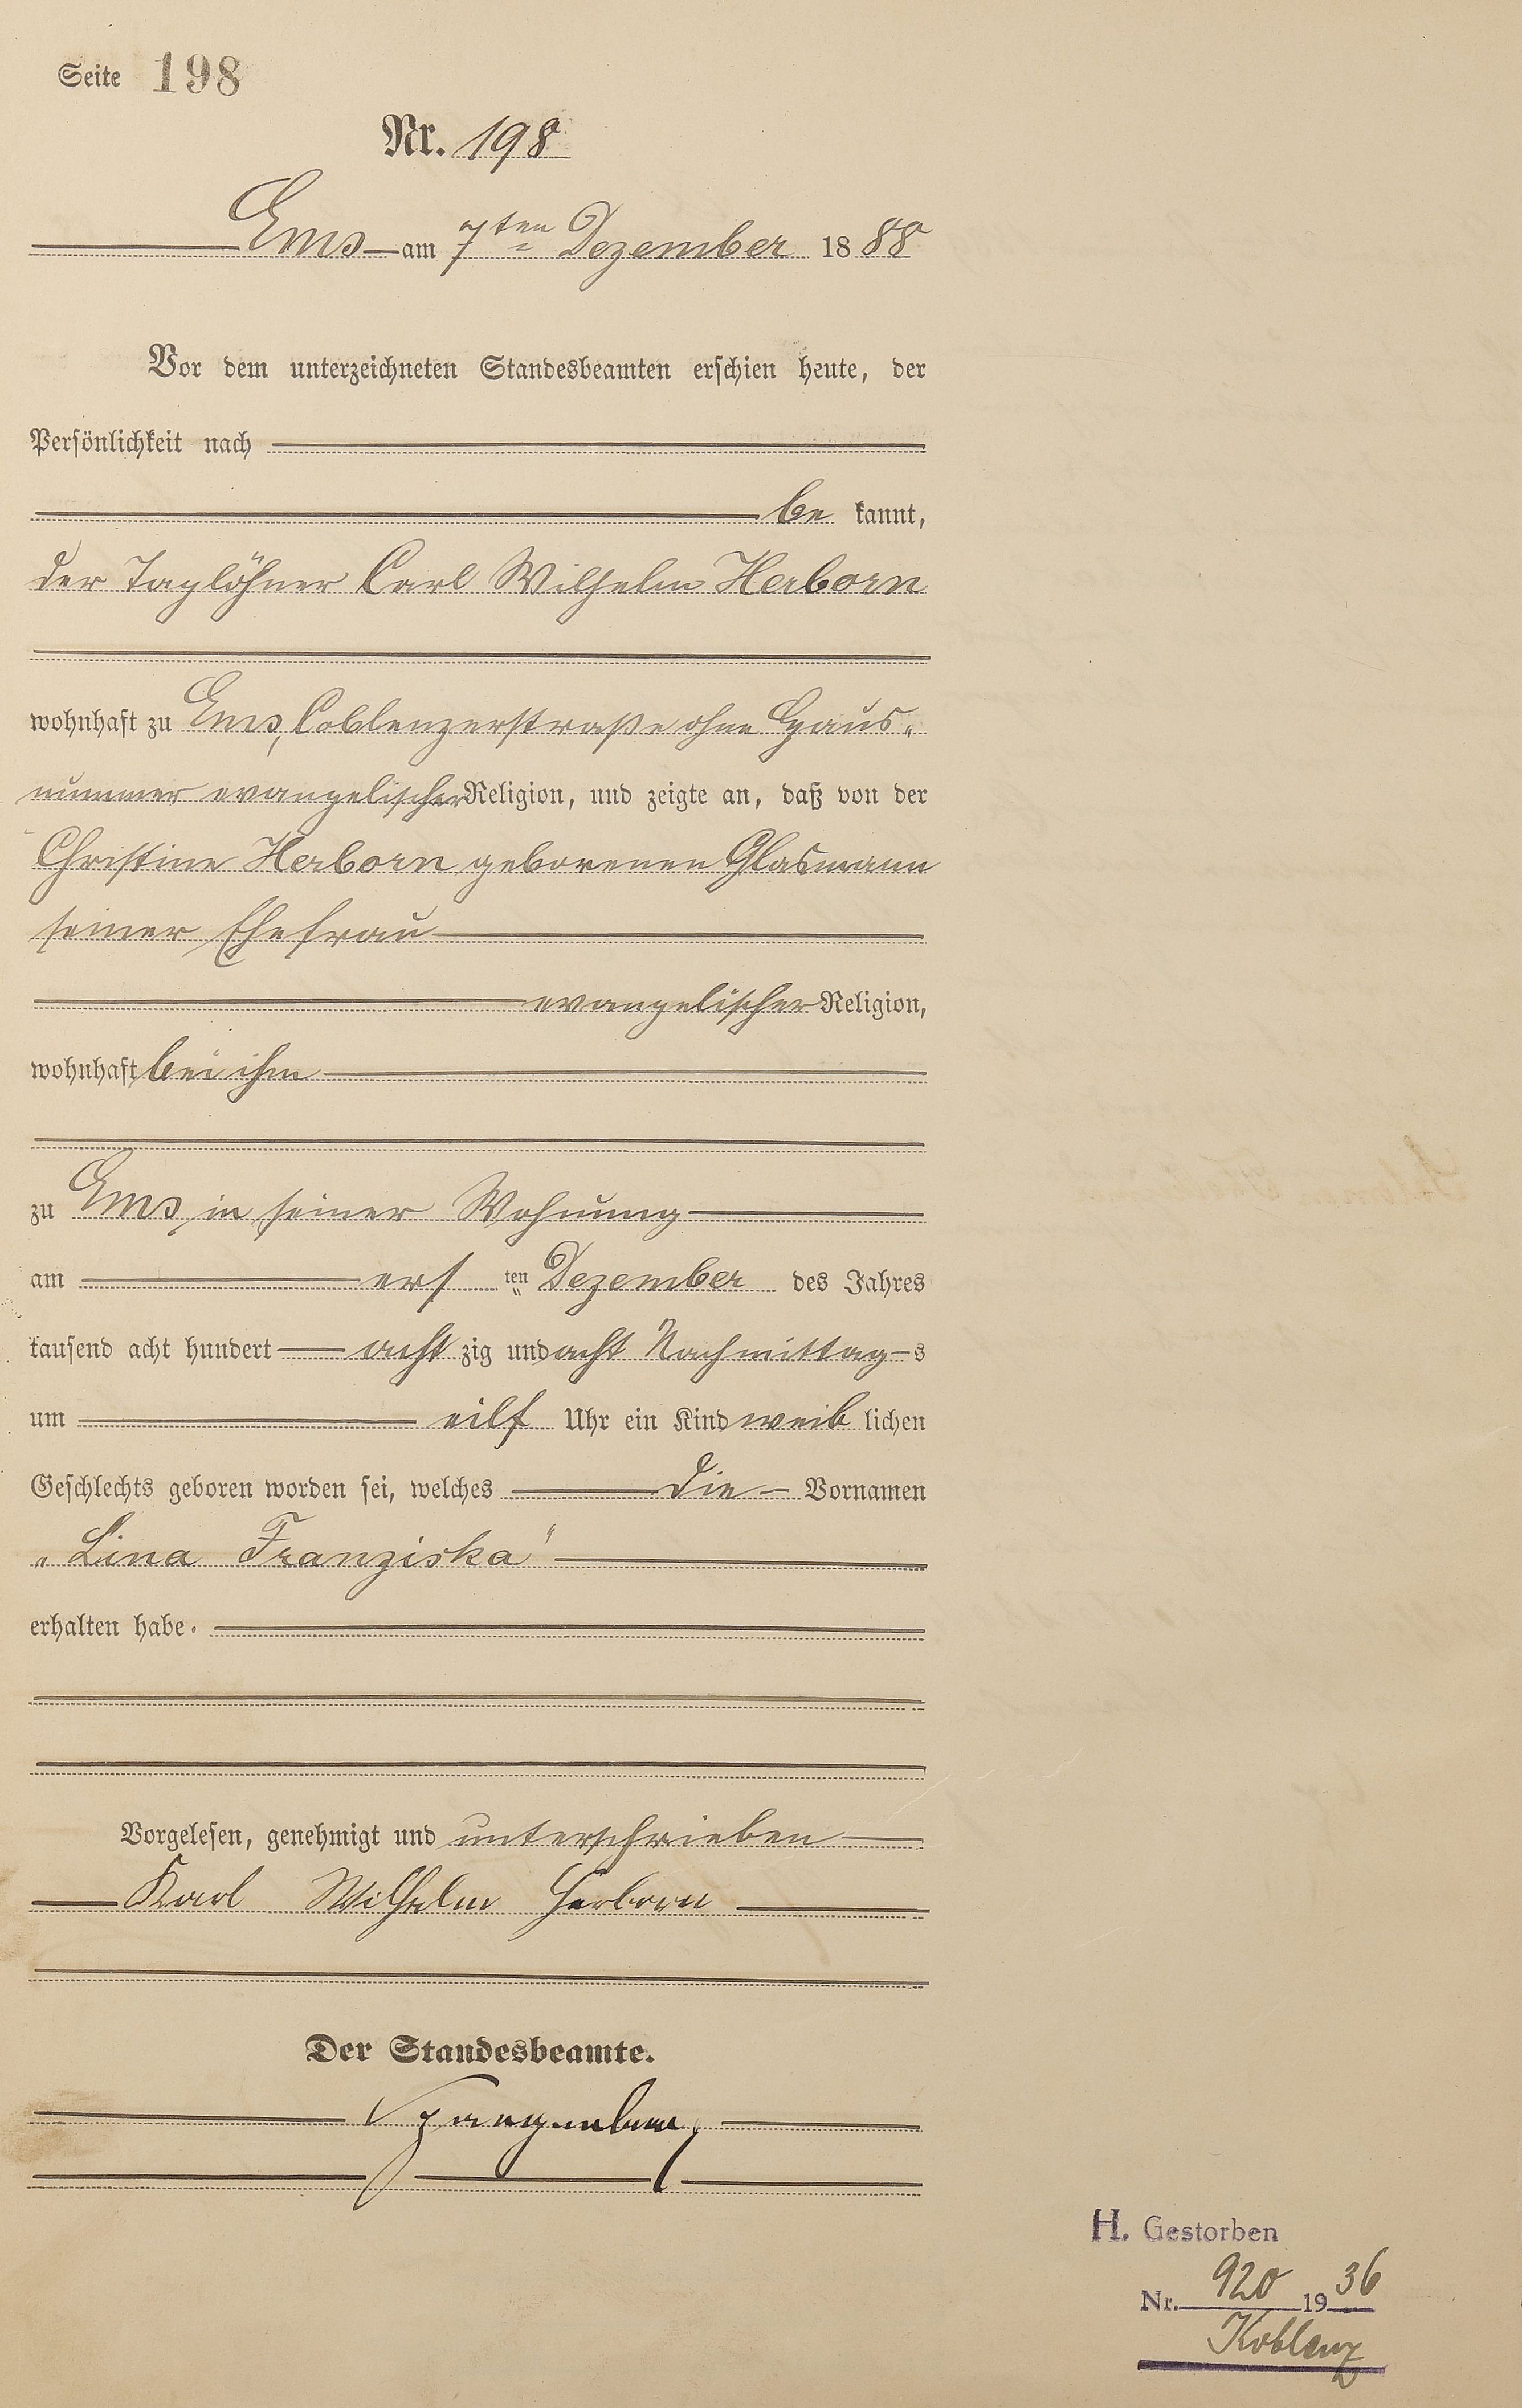 Seite 198
Nr. 198
Ems am 7ten Dezember 1888
Vor dem unterzeichneten Standesbeamten erschien heute, der
Persönlichkeit nach
be kannt,
der Taglöhner Carl Wilhelm Herborn
wohnhaft zu Ems, Coblenzerstraße ohne Haus-
nummer evangelischer Religion, und zeigte an, daß von der
Christine Herborn geborenen Glasmann
seiner Ehefrau
evangelischer Religion,
wohnhaft bei ihm
zu Ems in seiner Wohnung
am ers ten Dezember des Jahres
tausend acht hundert acht zig und acht Nachmittag s
um eilf Uhr ein Kind weib lichen
Geschlechts geboren worden sei, welches die Vornamen
„Lina Franziska"
erhalten habe.
Vorgelesen, genehmigt und unterschrieben
Karl Wilhelm Herborn
Der Standesbeamte.
H. Gestorben
Nr. 920 1936
Koblenz